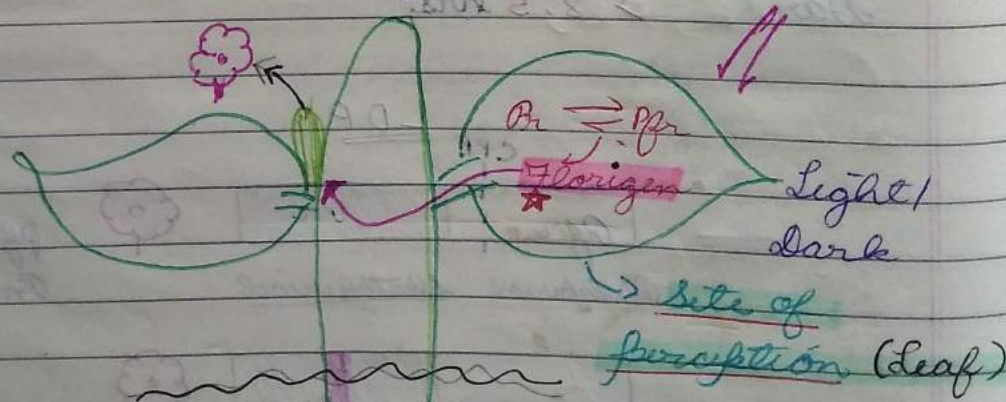 > 8.5 
Pr ⇌ Pfr
Florigen
Light/
Dark
Site of
perception (Leaf)